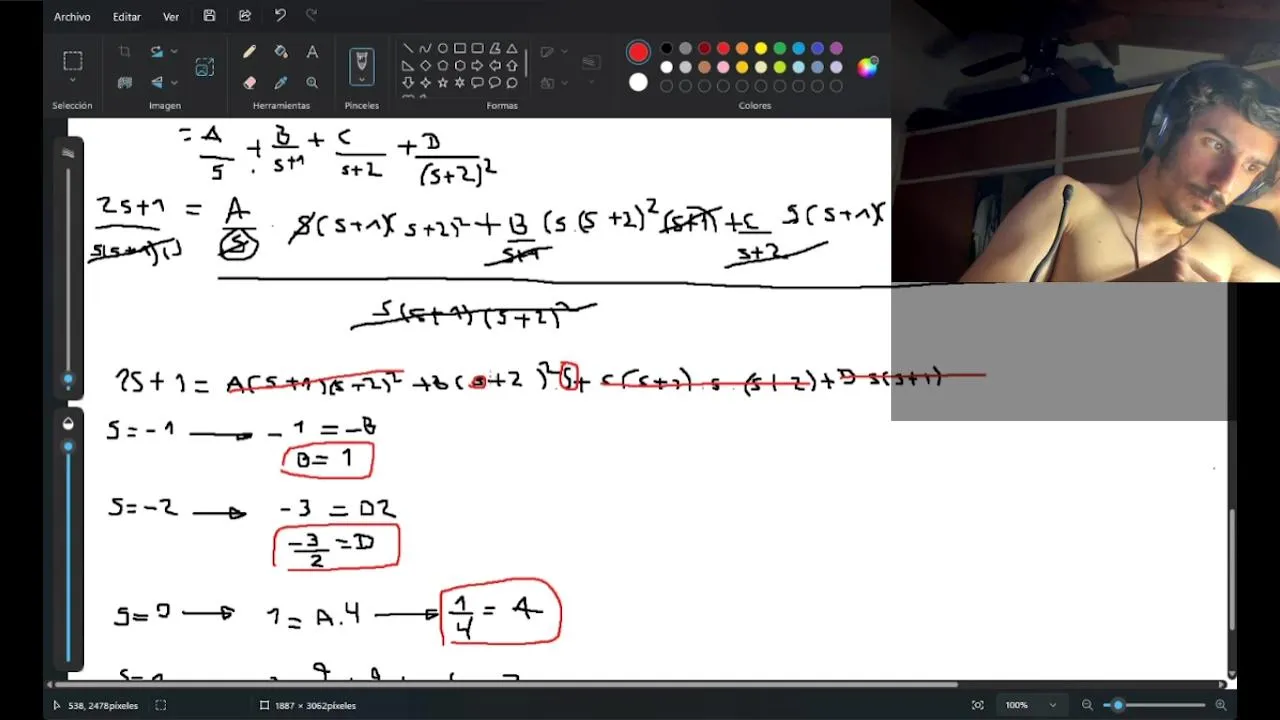 Archivo Editar Ver
Selección Imagen Herramientas Pinceles Formas Colores
= A/s + B/s+1 + C/s+2 + D/(s+2)²
2s+1 = A/s · s(s+1)(s+2)² + B/s+1 (s.(s+2)²(s+1) + C/s+2 s(s+1)(
s(s+1)()
s(s+1)(s+2)²
2s+1 = A(s+1)(s+2)² + B(s+2)² s +
s=-1 → -1 = -B
B= 1
s=-2 → -3 = D2
-3/2 = D
s=0 → 1 = A.4 → 1/4 = A
538, 2478píxeles 1887 × 3062píxeles 100%